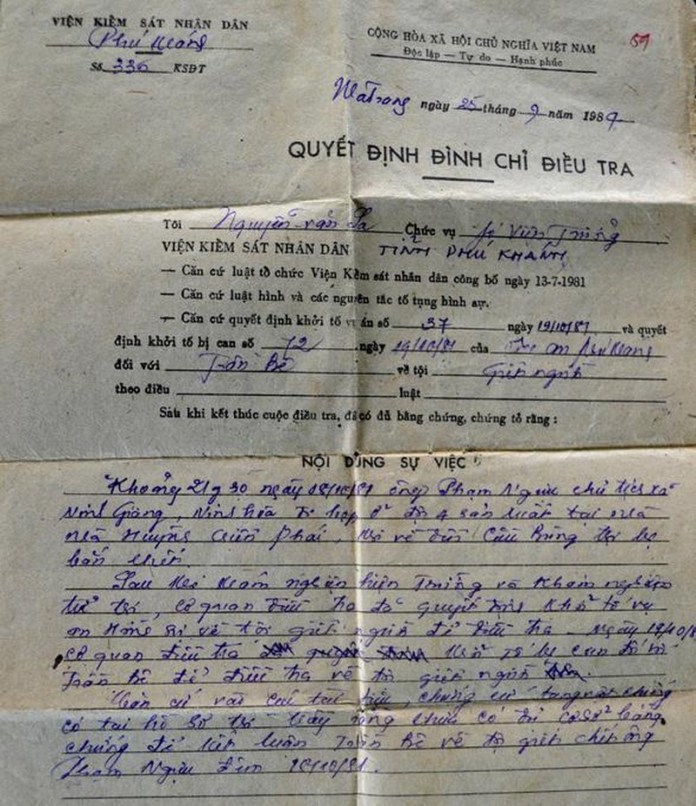 VIỆN KIỂM SÁT NHÂN DÂN
Phú Khánh
Số 336 KSĐT
CỘNG HÒA XÃ HỘI CHỦ NGHĨA VIỆT NAM
Độc lập — Tự do — Hạnh phúc
59
NhaTrang ngày 25 tháng 9 năm 1989
QUYẾT ĐỊNH ĐÌNH CHỈ ĐIỀU TRA
Tôi Nguyễn văn Chức vụ Viện Trưởng
VIỆN KIỂM SÁT NHÂN DÂN TỈNH PHÚ KHÁNH
— Căn cứ luật tổ chức Viện Kểm sát nhân dân công bố ngày 13-7-1981
— Căn cứ luật hình và các nguyên tắc tố tụng hình sự.
— Căn cứ quyết định khởi tố vụ án số 37 ngày 19/10/81 và quyết
định khởi tố bị can số 72 ngày 19/10/81 của
đối với Trần Bê về tội Giết người
theo điều luật
Sáu khi kết thúc cuộc điều tra, đã có đủ bằng chứng, chứng tỏ rằng :
NỘI DUNG SỰ VIỆC
Khoảng 21g30 ngày 18/10/81 ông Phạm Ngựu chủ tịch xã
Ninh Giang, Ninh hòa họp ở đội 4 sản xuất tại nhà
Huỳnh Phái, về đến cầu thì bị
bắn chết.
Sau khi khám nghiệm hiện Trường và khám nghiệm
tử thi, cơ quan điều tra đã quyết định khởi tố vụ
án về tội giết người để điều tra. Ngày 19/10/81
cơ quan điều tra khởi tố bị can đối với
Trần bê để điều tra về tội giết người
Căn cứ vào các tài liệu, chứng cứ
có tại hồ sơ thì thấy rằng chưa có đủ cơ sở bằng
chứng để kết luận Trần Bê về tội giết chết ông
Phạm Ngựu đêm 18/10/81.